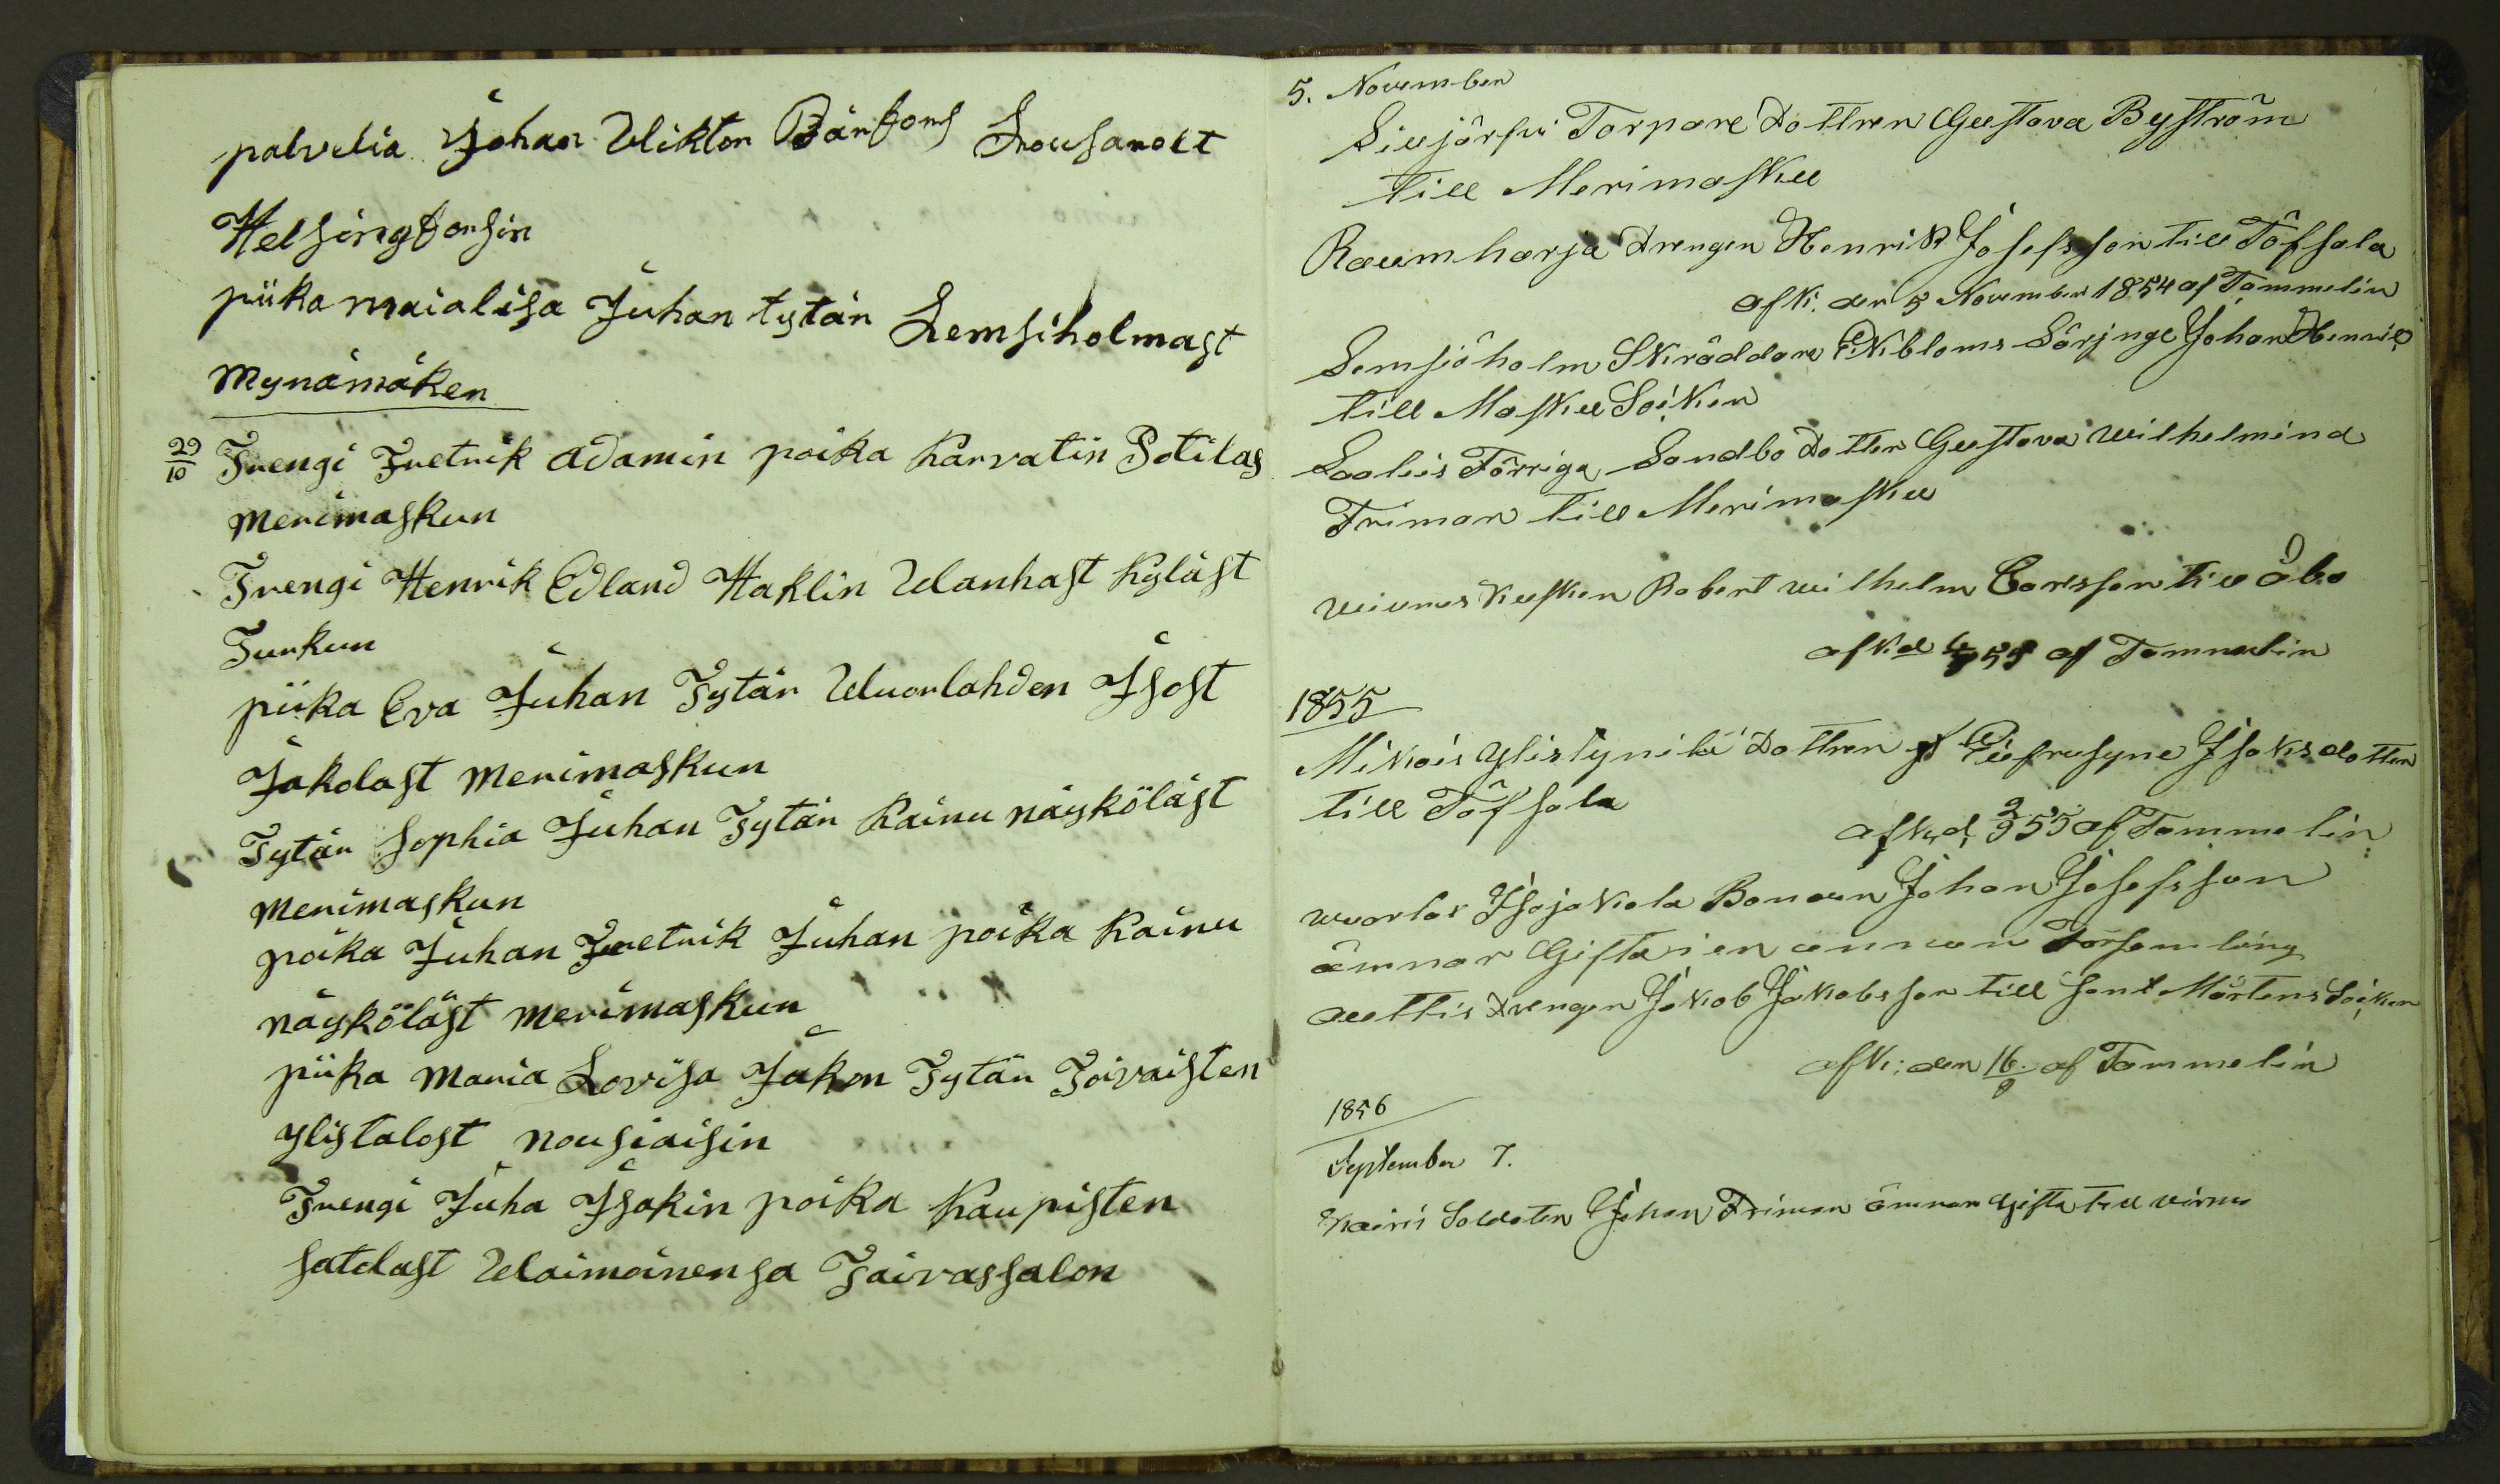 palvelia Johan Uliktor Bärfors Lousarolt
Helsingforsin
piika maialisa Juhan tytär Lemsiholmast
Mynämäken
29/10 Trengi Fretrik Adamin poika Karvatin Sotilas
Merimaskun
Trengi Henrik Edland Haklin Uanhast Kyläst
Turkun
piika Eva Juhan Tytär Uuorlahden Isost
Jakolast Merimaskun
Tytär Sophia Juhan Tytär Kainu näyköläst
Merimaskun
poika Juhan Fretrik Juhan poika Kainu
näyköläst Merimaskun
piika Maria Lovisa Jakon Tytär Toivaisten
ylistalost nousiaisin
Trengi Juha Isakin poika Kaupisten
satelast Uaimoinensa Taivassalon
5. November
Liujärfvi Torpare Dottren Gustava Byström
till Merimasku
Raumharja Drengen Henrik Josefsson till Töfsala
afk: den 5 November 1854 af Tammelin
Lemsjöholm Skräddare Ekbloms Lärjnge Johan Henric
till Masku Soiken
Laalois Förriga Landbo Dotter Gustava Wilhelmina
Friman till Merimasku
kusken Robert wilhelm Carlsson till åbo
afkd 55 af Tammelin
1855
Mikois Ylistynilä Dottren Eufrusyne Isaksdotter
till Töfsala
afkd 2/9 55 af Tammelin
wuorlax Isojakola Bonden Johan Josefsson
ämnar Gifta i en annan Församling
aultis Drengen Jakob Jakobsson till Sant Mårtens Soiken
afk: den 16/9 af Tammelin
1856
September 7.
Soldaten Johan Friman ämnar Gifta till virmo